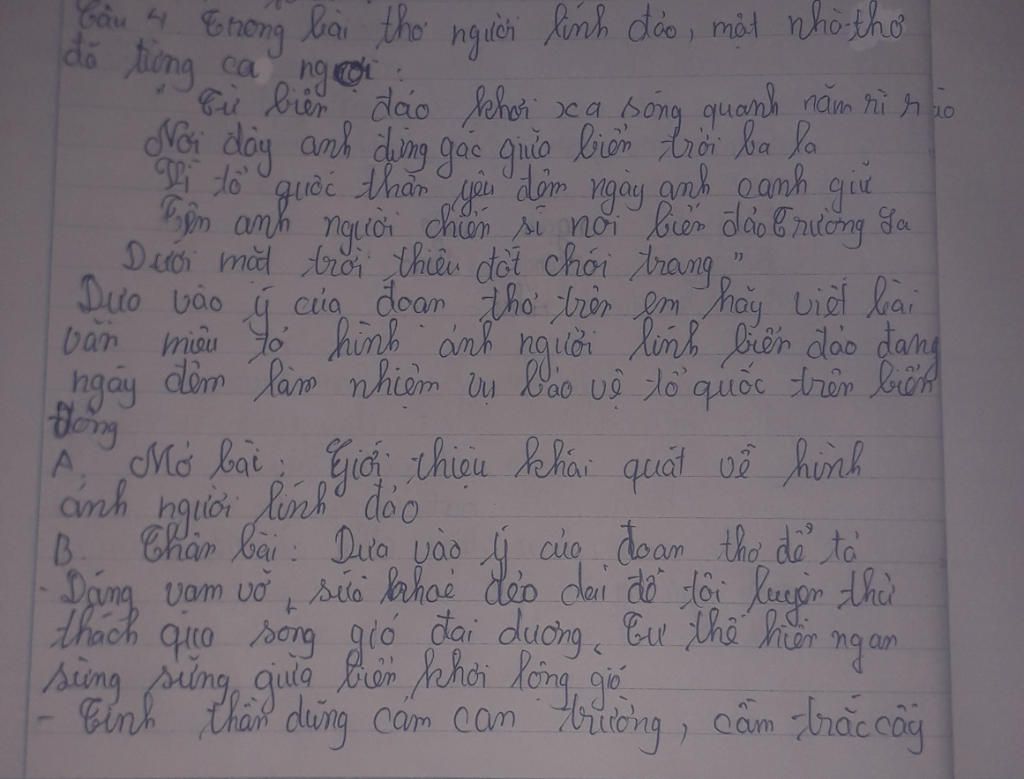 Câu 4 Trong bài thơ người lính đảo, một nhà thơ
đã từng ca ngợi:
"Từ biển đảo khơi xa sóng quanh năm rì rào
Nơi đây anh đứng gác giữa biển trời ba la
Vì tổ quốc thân yêu đêm ngày anh canh giữ
Tên anh người chiến sĩ nơi biển đảo Trường Sa
Dưới mặt trời thiêu đốt chói trang"
Dựa vào ý của đoạn thơ trên em hãy viết bài
văn miêu tả hình ảnh người lính biển đảo đang
ngày đêm làm nhiệm vụ bảo vệ tổ quốc trên biển
đông
A. Mở bài: Giới thiệu khái quát về hình
ảnh người lính đảo
B. Thân bài: Dựa vào ý của đoạn thơ để tả
- Dáng vạm vỡ, sức khoẻ dẻo dai đã tôi luyện thử
thách qua sóng gió đại dương. Tư thế hiên ngang
sừng sững giữa biển khơi lộng gió
- Tinh thần dũng cảm can trường, cầm trắc cây